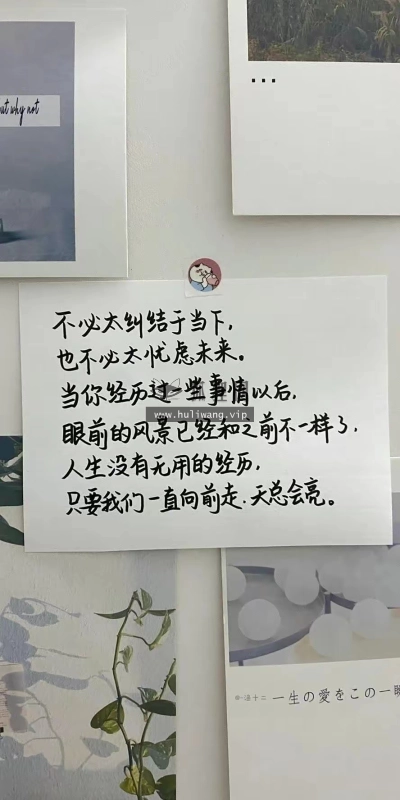 but why not
...
不必太纠结于当下,
也不必太忧虑未来。
当你经历过一些事情以后,
www.huliwang.vip
眼前的风景已经和之前不一样了,
人生没有无用的经历,
只要我们一直向前走.天总会亮。
一生の愛をこの一瞬